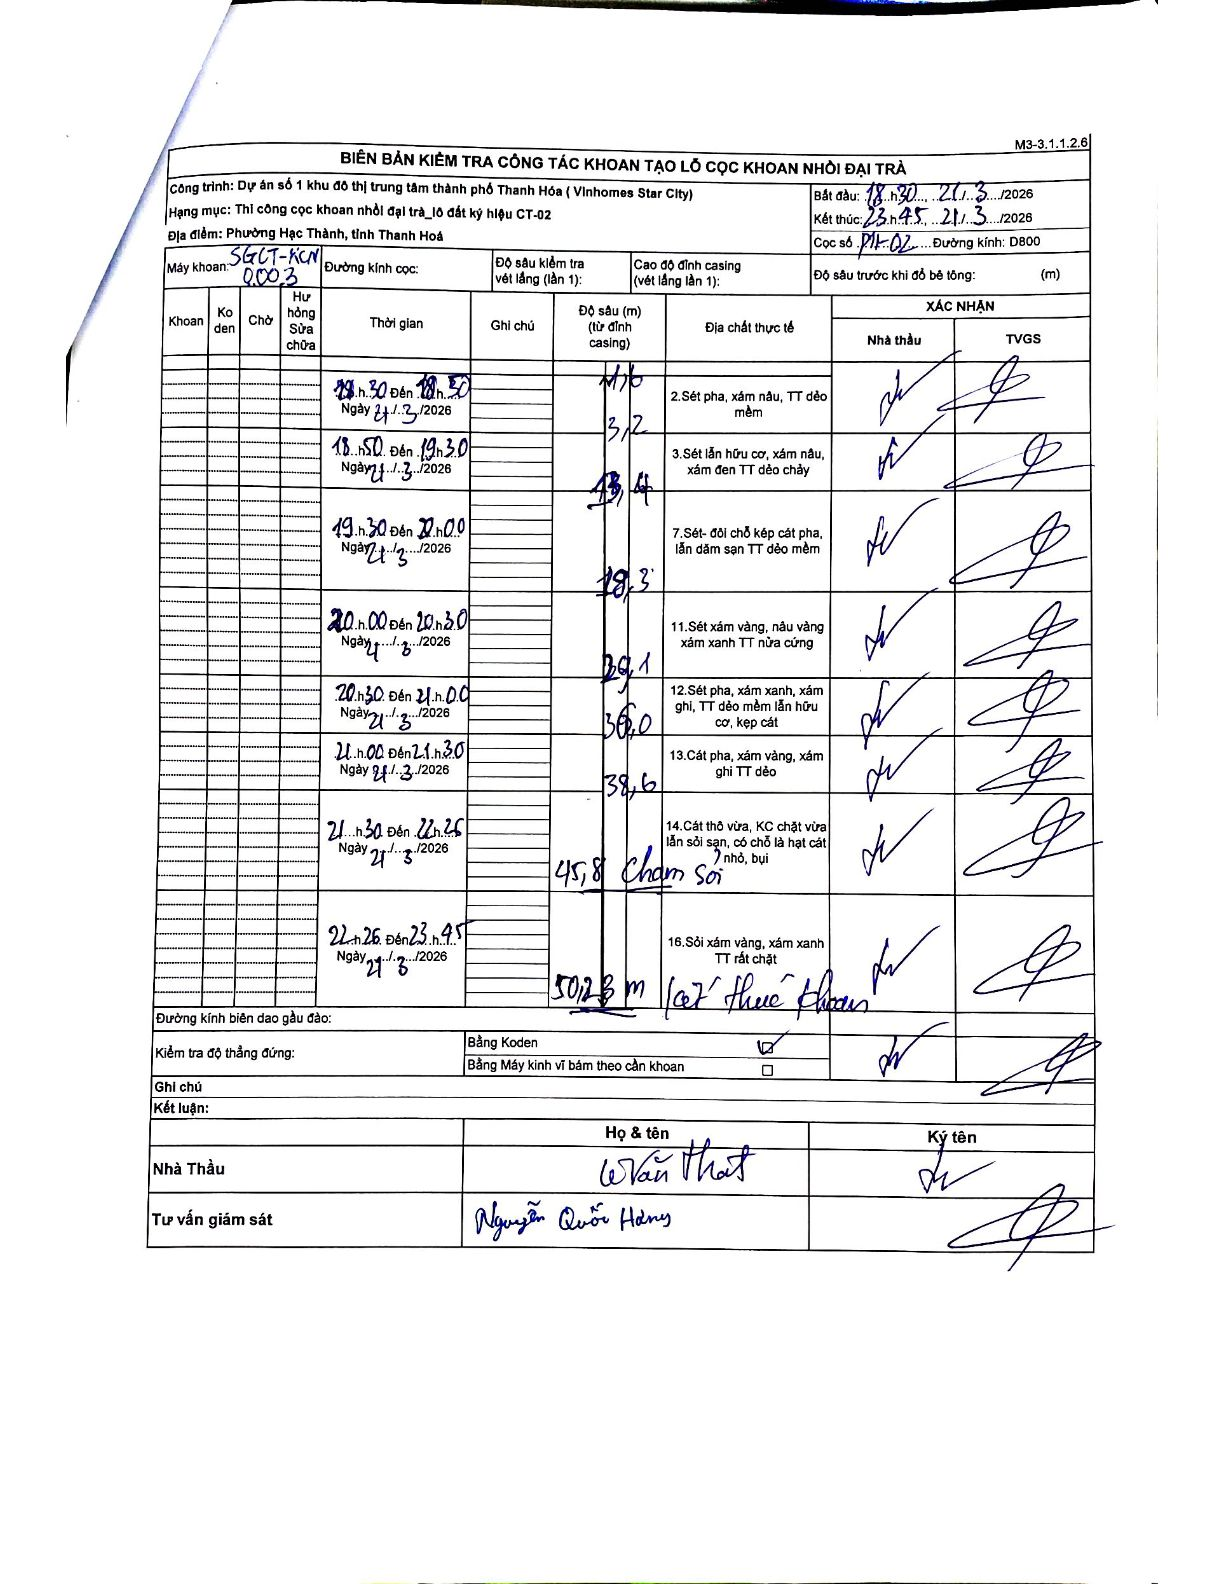 M3-3.1.1.2.6
BIÊN BẢN KIỂM TRA CÔNG TÁC KHOAN TẠO LỖ CỌC KHOAN NHỒI ĐẠI TRÀ
Công trình: Dự án số 1 khu đô thị trung tâm thành phố Thanh Hóa ( Vinhomes Star City)
Hạng mục: Thi công cọc khoan nhồi đại trà_lô đất ký hiệu CT-02
Địa điểm: Phường Hạc Thành, tỉnh Thanh Hoá
Bắt đầu: 18.h30..., ..21./..3..../2026
Kết thúc: 23.h.45..., ..21./..3..../2026
Cọc số .P11-02....Đường kính: D800
Máy khoan: SGCT-KCN
0003
Đường kính cọc:
Độ sâu kiểm tra
vét lắng (lần 1):
Cao độ đỉnh casing
(vét lắng lần 1):
Độ sâu trước khi đổ bê tông: (m)
Khoan
Ko
den
Chờ
Hư
hỏng
Sửa
chữa
Thời gian
Ghi chú
Độ sâu (m)
(từ đỉnh
casing)
Địa chất thực tế
XÁC NHẬN
Nhà thầu
TVGS
18.h.30 Đến 18.h.50
Ngày 21./..3..../2026
3,2
2.Sét pha, xám nâu, TT dẻo
mềm
18..h50. Đến .19h30
Ngày 21./..3..../2026
13,4
3.Sét lẫn hữu cơ, xám nâu,
xám đen TT dẻo chảy
19.h.30 Đến .h00
Ngày 21./..3..../2026
18,3
7.Sét- đôi chỗ kép cát pha,
lẫn dăm sạn TT dẻo mềm
20.h.00 Đến 20.h30
Ngày 21./..3..../2026
11.Sét xám vàng, nâu vàng
xám xanh TT nửa cứng
.20.h30. Đến 21.h.00
Ngày 21./..3..../2026
36,0
12.Sét pha, xám xanh, xám
ghi, TT dẻo mềm lẫn hữu
cơ, kẹp cát
.21..h.00 Đến 21.h.30
Ngày 21./..3..../2026
38,6
13.Cát pha, xám vàng, xám
ghi TT dẻo
21...h30 Đến .22h.26
Ngày 21./..3..../2026
45,8 Chạm sỏi
14.Cát thô vừa, KC chặt vừa
lẫn sỏi sạn, có chỗ là hạt cát
nhỏ, bụi
22..h26. Đến 23.h.45
Ngày 21./..3..../2026
50,23 m Kết thúc khoan
16.Sỏi xám vàng, xám xanh
TT rất chặt
Đường kính biên dao gầu đào:
Kiểm tra độ thẳng đứng:
Bằng Koden ☑
Bằng Máy kinh vĩ bám theo cần khoan ☐
Ghi chú
Kết luận:
Họ & tên
Ký tên
Nhà Thầu
Văn That
Tư vấn giám sát
Nguyễn Quốc Hưng